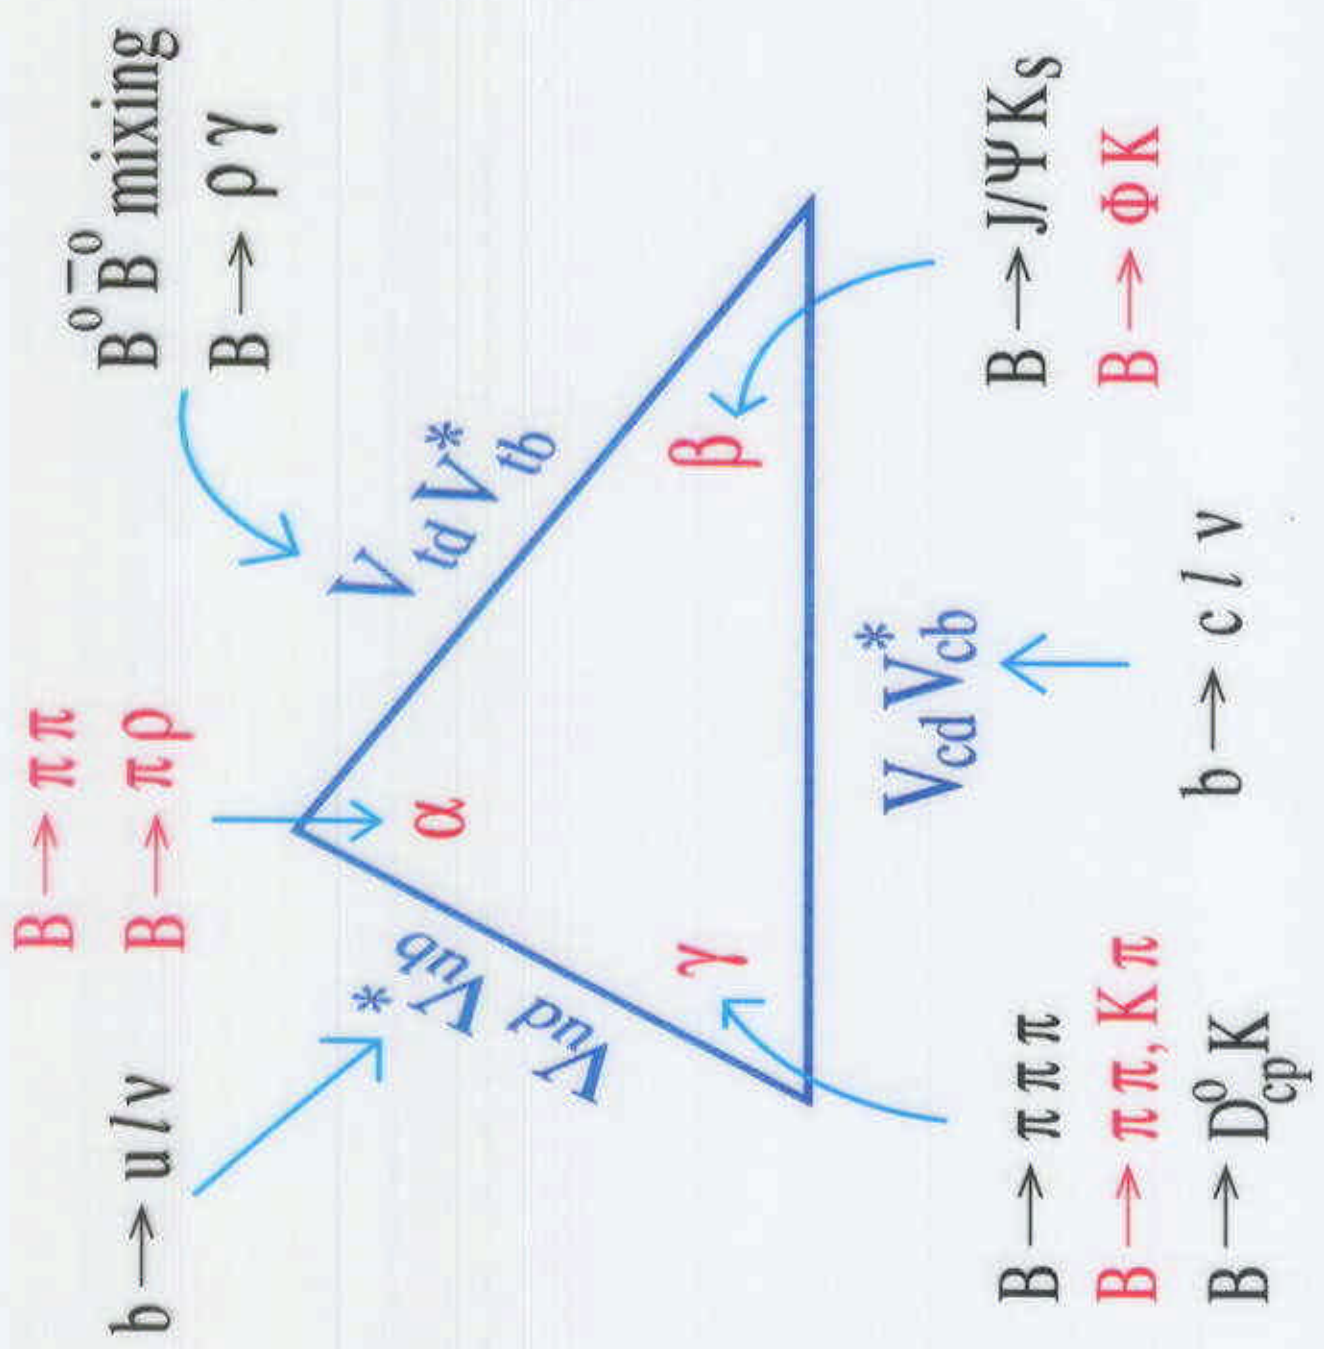 B → π π
B → π ρ
b → u l ν
B⁰ B̄⁰ mixing
B → ρ γ
V_ud V*_ub
V_td V*_tb
α
γ
β
V_cd V*_cb
B → π π π
B → π π, K π
B → D⁰_cp K
b → c l ν
B → J/Ψ K_S
B → Φ K